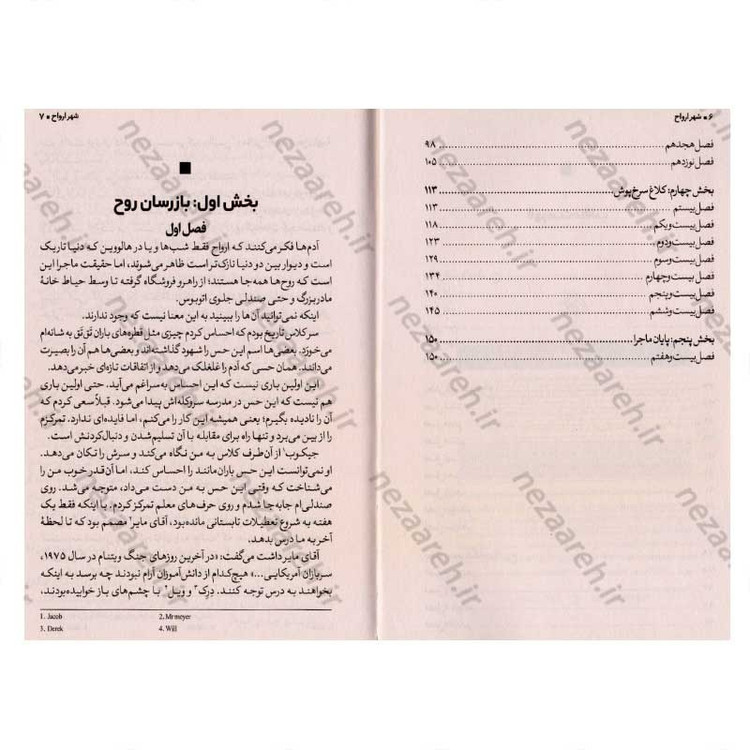 ۶ ■ شهر ارواح
فصل هجدهم ........ ۹۸
فصل نوزدهم ........ ۱۰۵
بخش چهارم: کلاغ سرخ‌پوش ........ ۱۱۳
فصل بیستم ........ ۱۱۳
فصل بیست‌ویکم ........ ۱۱۸
فصل بیست‌ودوم ........ ۱۲۳
فصل بیست‌وسوم ........ ۱۲۹
فصل بیست‌وچهارم ........ ۱۳۴
فصل بیست‌وپنجم ........ ۱۴۰
فصل بیست‌وششم ........ ۱۴۵
بخش پنجم: پایان ماجرا ........ ۱۵۰
فصل بیست‌وهفتم ........ ۱۵۰
شهر ارواح ■ ۷
بخش اول: بازرسان روح
فصل اول
آدم‌ها فکر می‌کنند که ارواح فقط شب‌ها و یا در هالووین که دنیا تاریک
است و دیوار بین دو دنیا نازک‌تر است ظاهر می‌شوند، اما حقیقت ماجرا این
است که روح‌ها همه‌جا هستند؛ از راهرو فروشگاه گرفته تا وسط حیاط خانهٔ
مادربزرگ و حتی صندلی جلوی اتوبوس.
اینکه نمی‌توانید آن‌ها را ببینید به این معنا نیست که وجود ندارند.
سر کلاس تاریخ بودم که احساس کردم چیزی مثل قطره‌های باران تَق‌تَق به شانه‌ام
می‌خورد. بعضی‌ها اسم این حس را شهود گذاشته‌اند و بعضی‌ها هم آن را بصیرت
می‌دانند. همان حسی که آدم را غلغلک می‌دهد و از اتفاقات تازه‌ای خبر می‌دهد.
این اولین باری نیست که این احساس به سراغم می‌آید. حتی اولین باری
هم نیست که این حس در مدرسه سروکله‌اش پیدا می‌شود. قبلاً سعی کردم که
آن را نادیده بگیرم؛ یعنی همیشه این کار را می‌کنم، اما فایده‌ای ندارد. تمرکزم
را از بین می‌برد و تنها راه برای مقابله با آن تسلیم‌شدن و دنبال‌کردنش است.
جیکوب¹ از آن‌طرف کلاس به من نگاه می‌کند و سرش را تکان می‌دهد.
او نمی‌توانست این حس باران‌مانند را احساس کند، اما آن‌قدر خوب من را
می‌شناخت که وقتی این حس به من دست می‌داد، متوجه می‌شد. روی
صندلی‌ام جابه‌جا شدم و روی حرف‌های معلم تمرکز کردم. با اینکه فقط یک
هفته به شروع تعطیلات تابستانی مانده بود، آقای مایر² مصمم بود که تا لحظهٔ
آخر به ما درس بدهد.
آقای مایر داشت می‌گفت: «در آخرین روزهای جنگ ویتنام در سال ۱۹۷۵،
سربازان آمریکایی...» هیچ‌کدام از دانش‌آموزان آرام نبودند چه برسد به اینکه
بخواهند به درس توجه کنند. دِرِک³ و ویل⁴ با چشم‌های باز خوابیده بودند،
1. Jacob 2. Mr meyer
3. Derek 4. Will
nezaareh.ir
nezaareh.ir
nezaareh.ir
nezaareh.ir
nezaareh.ir
nezaareh.ir
nezaareh.ir
nezaareh.ir
nezaareh.ir
nezaareh.ir